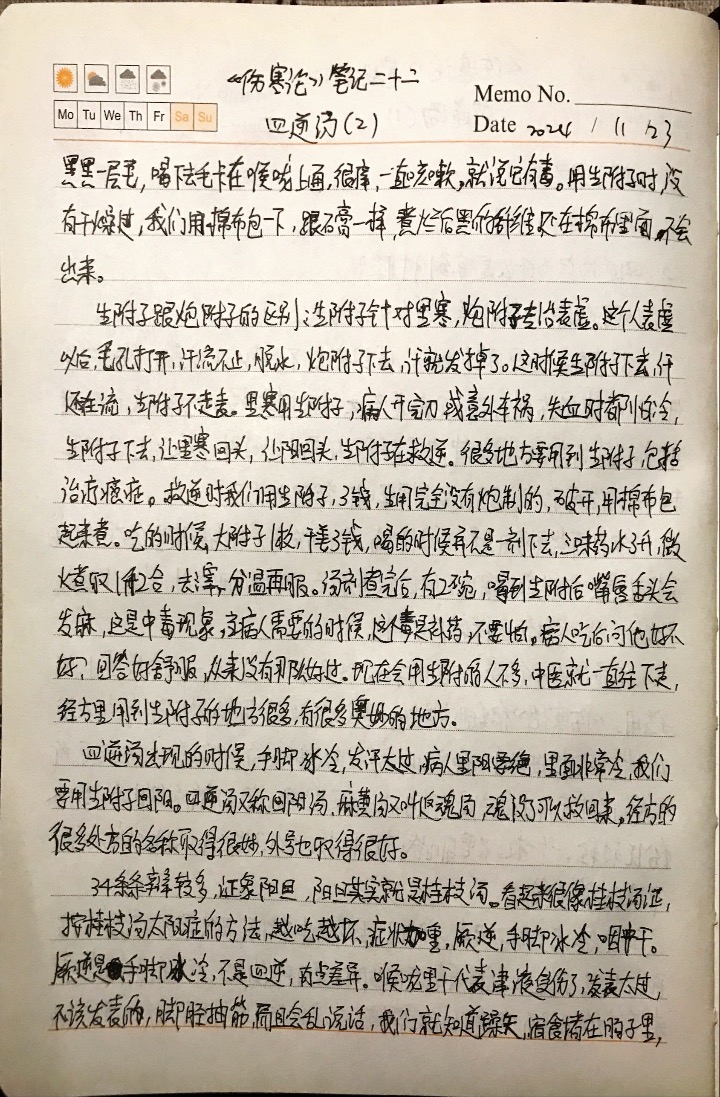 《伤寒论》笔记二十二
Memo No.
Mo Tu We Th Fr Sa Su
四逆汤(2)
Date 2024 / 11 / 23
黑黑一层毛,喝下去毛卡在喉咙上面,很痒,一直咳嗽,就说它有毒。用生附子时,没
有干燥过,我们用棉布包一下,跟石膏一样,煮烂后黑的纤维还在棉布里面,不会
出来。
生附子跟炮附子的区别:生附子针对里寒,炮附子专治表虚。这个人表虚
以后,毛孔打开,汗流不止,脱水,炮附子下去,汗就发掉了。这时候生附子下去,汗
还在流,生附子不走表。里寒用生附子,病人开完刀或意外车祸,失血时都冰冷,
生附子下去,让里寒回头,让阳回头,生附子在救逆。很多地方要用到生附子,包括
治疗癌症。救逆时我们用生附子,3钱,生用完全没有炮制的,破开,用棉布包
起来煮。吃的时候,大附子1枚,干姜3钱,喝的时候并不是一剂下去,三味药水3升,微
火煮取1升2合,去滓,分温再服。汤剂煮完后,有2碗,喝到生附后嘴唇舌头会
发麻,这是中毒现象,当病人需要的时候,这个毒是补药,不要怕。病人吃后问他好不
好?回答好舒服,从来没有那么好过。现在会用生附的人不多,中医就一直往下走,
经方里用到生附子的地方很多,有很多奥妙的地方。
四逆汤出现的时候,手脚冰冷,发汗太过,病人里阳要绝,里面非常冷,我们
要用生附子回阳。四逆汤又称回阳汤,麻黄汤又叫返魂汤,魂没了可以救回来。经方的
很多处方的名称取得很妙,外号也取得很好。
34条条辨较多,证象阳旦,阳旦其实就是桂枝汤。看起来很像桂枝汤证,
按桂枝汤太阳症的方法,越吃越坏,症状加重,厥逆,手脚冰冷,咽中干。
厥逆是手脚冰冷,不是四逆,有点差异。喉咙里干代表津液受伤了,发表太过,
不该发表的,脚胫抽筋,而且会乱说话,我们就知道燥矢,宿食堵在肠子里,